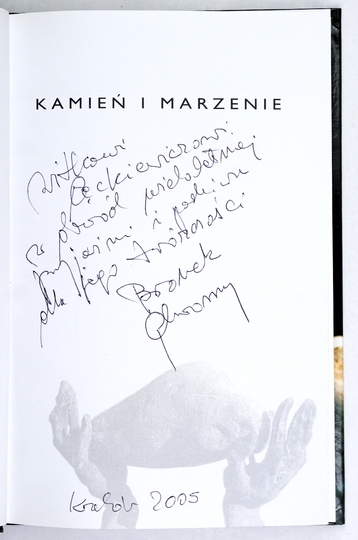 KAMIEŃ I MARZENIE
Witkowi
Cęckiewiczowi
w dowód wieloletniej
przyjaźni i podziwu
dla jego twórczości
Bronek
Chromy
Kraków 2005